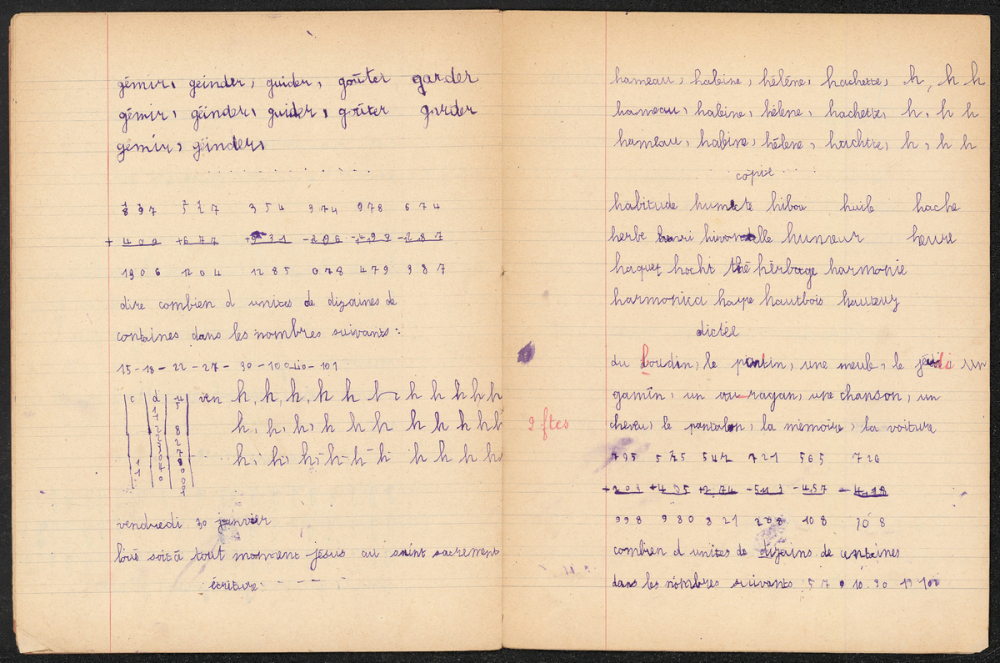 gémir, geinder, guider, goûter garder
gémir, geinder, guider, goûter garder
gémir, geinder,
897 527 354 374 978 674
+ 409 +677 +931 -296 -499 -287
1306 1204 1285 078 479 387
dire combien d unites de dizaines de
centaines dans les nombres suivants:
15-18-22-27-30-100-110-101
c d u ven h, h, h, h h h h h h h
h, h, h, h h h h h h h
h, h, h, h h h h h h h
vendredi 30 janvier
loué soit à tout moment jésus au saint sacrement
écriture
hameau, habine, hélène, hachette, h, h h
hameau, habine, hélène, hachette, h, h h
hameau, habine, hélène, hachtre, h, h h
copie
habitude humecte hibou huile hache
herbe hirondelle humeur heure
haquet hochi thé herbage harmonie
harmonica harpe hautbois hauteuy
dictée
du boudin, le pantin, une meule, le jeudi un
gamin, un rayan, une chanson, un
cheveu, le pantalon, la mémoire, la voiture
2 ftes
795 525 547 721 565 726
+203 +455 +274 -513 -457 -618
998 980 821 208 108 108
combien d unites de dizains de centaines
dans les nombres suivants 5 7 9 10 90 19 100